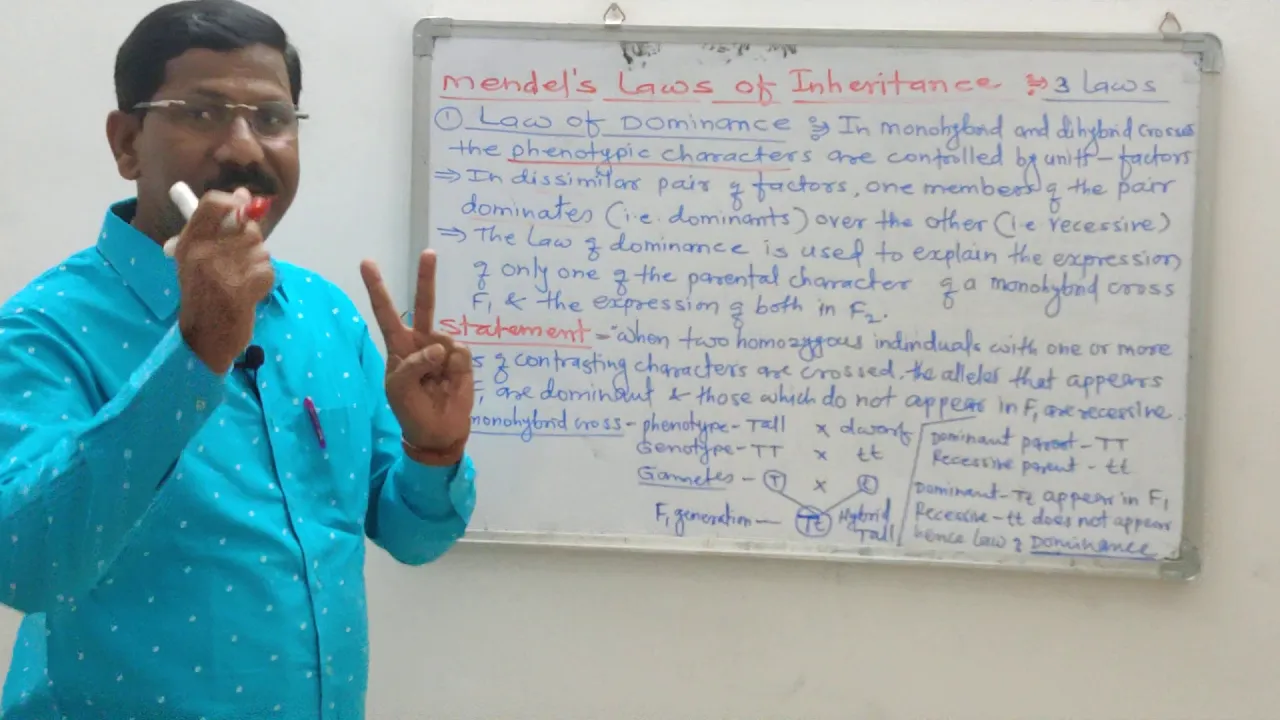 Mendel's Laws of Inheritance ⇒ 3 Laws
① Law of Dominance ⇒ In monohybrid and dihybrid crosses
the phenotypic characters are controlled by units - factors
⇒ In dissimilar pair of factors, one members of the pair
dominates (i.e. dominants) over the other (i.e recessive)
⇒ The Law of dominance is used to explain the expression
of only one of the parental character of a monohybrid cross
F₁ & the expression of both in F₂.
Statement = "when two homozygous individuals with one or more
of contrasting characters are crossed, the alleles that appears
are dominant & those which do not appear in F₁ are recessive.
monohybrid cross - phenotype - Tall x dwarf
Genotype - TT x tt
Gametes - T x t
F₁ generation — Tt Hybrid
Tall
Dominant parent - TT
Recessive parent - tt
Dominant - Tt appear in F₁
Recessive - tt does not appear
hence Law of Dominance